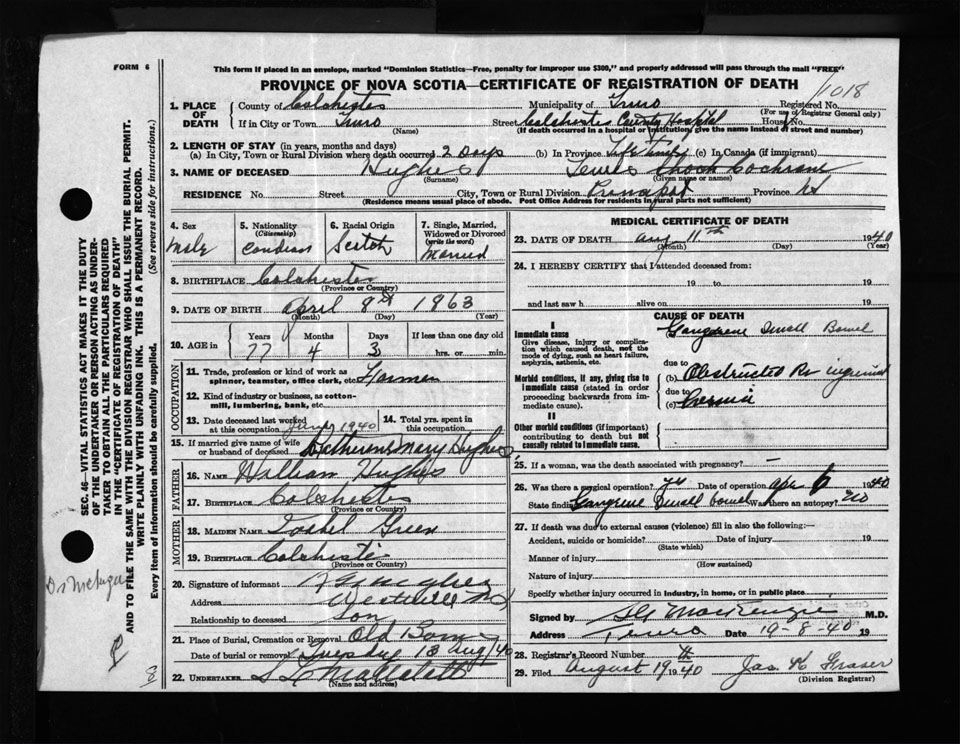 FORM 6
This form if placed in an envelope, marked "Dominion Statistics—Free, penalty for improper use $300," and properly addressed will pass through the mail "FREE"
PROVINCE OF NOVA SCOTIA—CERTIFICATE OF REGISTRATION OF DEATH
1018
1. PLACE OF DEATH
County of Colchester Municipality of Truro Registered No.
(For use of Registrar General only)
If in City or Town Truro Street Colchester County Hospital House No.
(Name) (If death occurred in a hospital or institution, give the name instead of street and number)
2. LENGTH OF STAY (in years, months and days)
(a) In City, Town or Rural Division where death occurred 2 Days (b) In Province Life Time (c) In Canada (if immigrant)
3. NAME OF DECEASED Hughes Enoch Cochrane
(Surname) (Given name or names)
RESIDENCE No. Street City, Town or Rural Division Province NS
(Residence means usual place of abode. Post Office Address for residents in rural parts not sufficient)
4. Sex
Male
5. Nationality
(Citizenship)
6. Racial Origin
Scotch
7. Single, Married, Widowed or Divorced
(write the word)
Married
8. BIRTHPLACE Colchester
(Province or Country)
9. DATE OF BIRTH April 8th 1863
(Month) (Day) (Year)
10. AGE in
Years Months Days If less than one day old
77 4 3 hrs. or min.
OCCUPATION
11. Trade, profession or kind of work as spinner, teamster, office clerk, etc. Farmer
12. Kind of industry or business, as cotton-mill, lumbering, bank, etc.
13. Date deceased last worked at this occupation June 1940
14. Total yrs. spent in this occupation
15. If married give name of wife or husband of deceased Catherine Mary Hughes
FATHER
16. NAME William Hughes
17. BIRTHPLACE Colchester
(Province or Country)
MOTHER
18. MAIDEN NAME Isabel Green
19. BIRTHPLACE Colchester
(Province or Country)
20. Signature of informant Hughes
Address Westville NS
Relationship to deceased Son
21. Place of Burial, Cremation or Removal Old Barns
Date of burial or removal Tuesday 13 Aug/40
22. UNDERTAKER
(Name and address)
MEDICAL CERTIFICATE OF DEATH
23. DATE OF DEATH Aug 11th 1940
(Month) (Day) (Year)
24. I HEREBY CERTIFY that I attended deceased from:
19 to 19
and last saw h alive on 19
CAUSE OF DEATH
I
Immediate cause
Give disease, injury or complication which caused death, not the mode of dying, such as heart failure, asphyxia, asthenia, etc.
Gangrene Small Bowel
due to
Morbid conditions, if any, giving rise to immediate cause (stated in order proceeding backwards from immediate cause).
(b) Obstructed Rt inguinal
due to
(c) hernia
II
Other morbid conditions (if important) contributing to death but not causally related to immediate cause.
25. If a woman, was the death associated with pregnancy? —
26. Was there a surgical operation? Date of operation 1940
State finding Gangrene Small bowel Was there an autopsy? no
27. If death was due to external causes (violence) fill in also the following:—
Accident, suicide or homicide? Date of injury 19
(State which)
Manner of injury
(How sustained)
Nature of injury
Specify whether injury occurred in industry, in home, or in public place
Signed by MacKenzie M.D.
Address Truro Date 19-8-40 19
28. Registrar's Record Number
29. Filed August 19 1940 Jas K Fraser
(Division Registrar)
SEC. 46—VITAL STATISTICS ACT MAKES IT THE DUTY
OF THE UNDERTAKER OR PERSON ACTING AS UNDERTAKER TO OBTAIN ALL THE PARTICULARS REQUIRED
IN THE "CERTIFICATE OF REGISTRATION OF DEATH"
AND TO FILE THE SAME WITH THE DIVISION REGISTRAR WHO SHALL ISSUE THE BURIAL PERMIT.
WRITE PLAINLY WITH UNFADING INK. THIS IS A PERMANENT RECORD.
Every item of information should be carefully supplied. (See reverse side for instructions.)